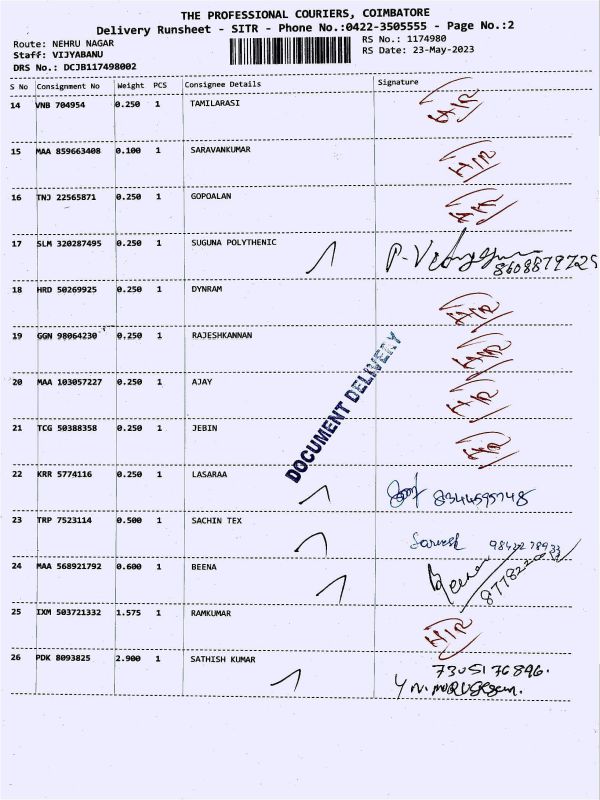 THE PROFESSIONAL COURIERS, COIMBATORE
Delivery Runsheet - SITR - Phone No.:0422-3505555 - Page No.:2
Route: NEHRU NAGAR
RS No.: 1174980
Staff: VIJYABANU
RS Date: 23-May-2023
DRS No.: DCJB117498002
S No Consignment No Weight PCS Consignee Details Signature
14 VNB 704954 0.250 1 TAMILARASI
15 MAA 859663408 0.100 1 SARAVANKUMAR
16 TNJ 22565871 0.250 1 GOPOALAN
17 SLM 320287495 0.250 1 SUGUNA POLYTHENIC
8608879725
18 HRD 50269925 0.250 1 DYNRAM
19 GGN 98064230 0.250 1 RAJESHKANNAN
20 MAA 103057227 0.250 1 AJAY
DOCUMENT DELIVERY
21 TCG 50388358 0.250 1 JEBIN
22 KRR 5774116 0.250 1 LASARAA
8344595748
23 TRP 7523114 0.500 1 SACHIN TEX
Sarvesh
24 MAA 568921792 0.600 1 BEENA
Beena
25 IXM 503721332 1.575 1 RAMKUMAR
26 PDK 8093825 2.900 1 SATHISH KUMAR
7305176896.